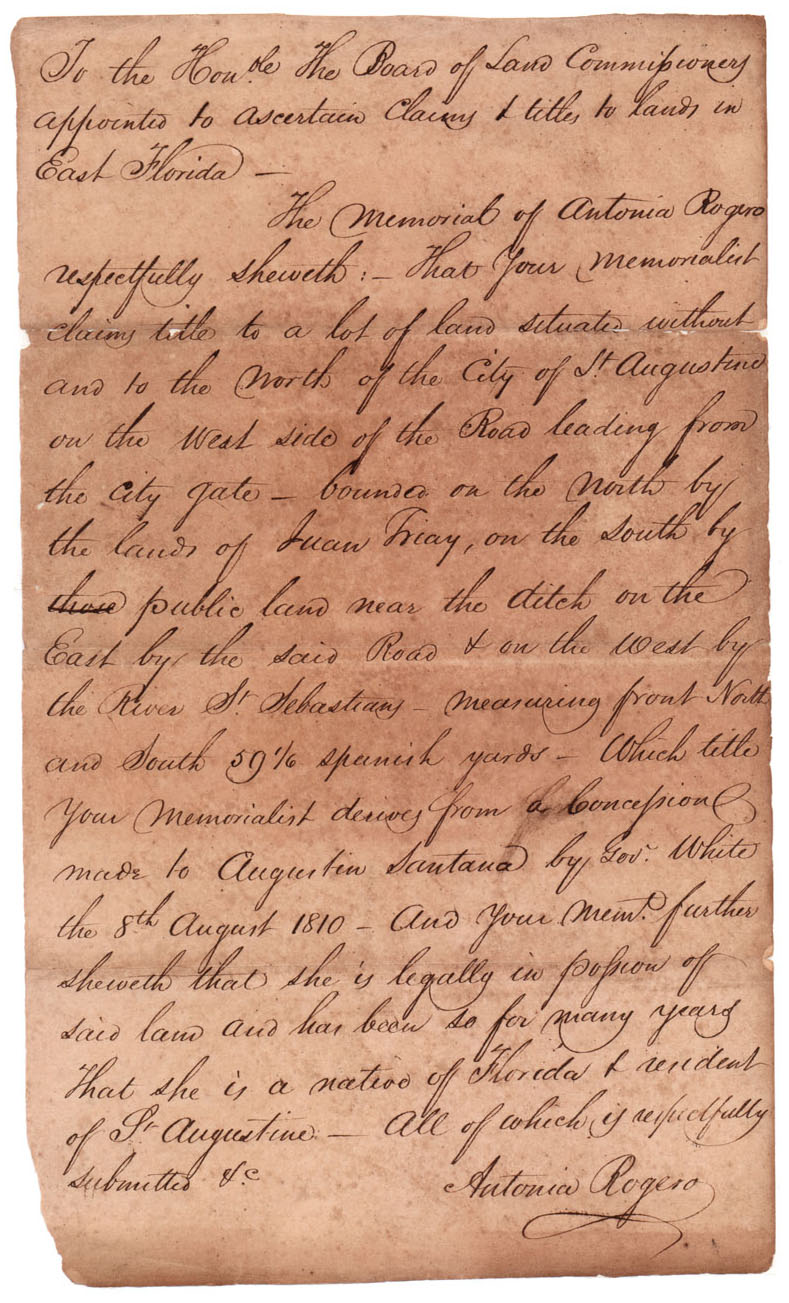 To the Honble The Board of Land Commissioners
appointed to ascertain Claims & titles to lands in
East Florida —
The Memorial of Antonia Rogero
respectfully sheweth : — That Your Memorialist
claims title to a lot of land situated without
and to the North of the City of St Augustine
on the West side of the Road leading from
the City gate — bounded on the North by
the lands of Juan Triay, on the South by
those public land near the ditch on the
East by the said Road & on the West by
the River St Sebastians — measuring front North
and South 59 1/6 spanish yards — Which title
Your Memorialist derives from a Concession
made to Augustin Santana by Gov. White
the 8th August 1810 — And Your Memt. further
sheweth that she is legally in possion of
said land and has been so for many years
That she is a native of Florida & resident
of St Augustine — All of which is respectfully
submitted &c
Antonia Rogero